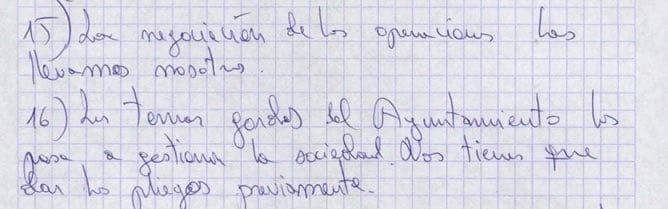 15) La negociación de las operaciones las
llevamos nosotros.
16) Los temas gordos del Ayuntamiento los
pasa a gestionar la sociedad. Nos tienes que
dar los pliegos previamente.